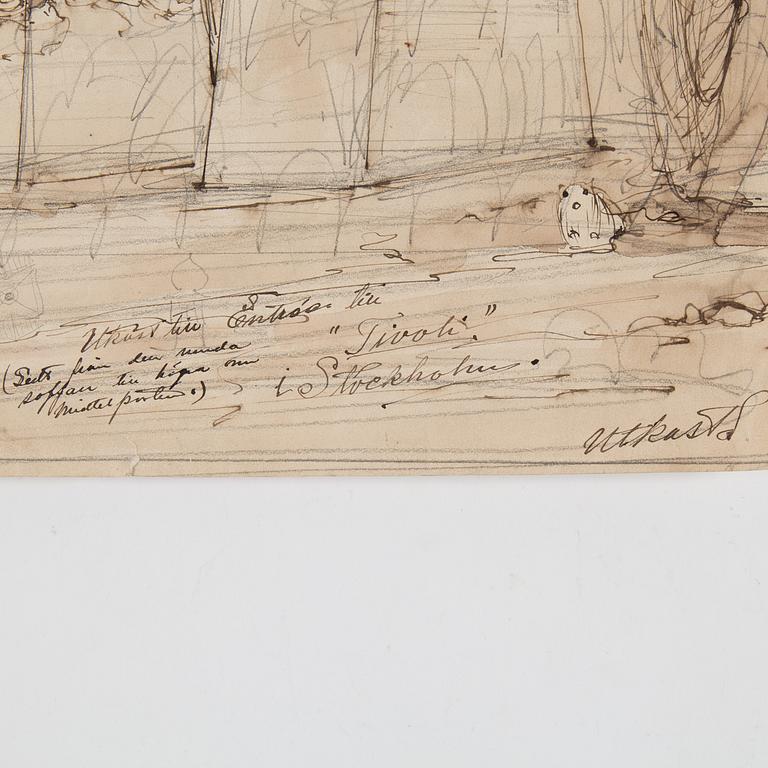 Utkast till Entrée till
"Tivoli."
i Stockholm.
(Sedt från den runda
soffan till höger om
Mittelporten.)
Utkast